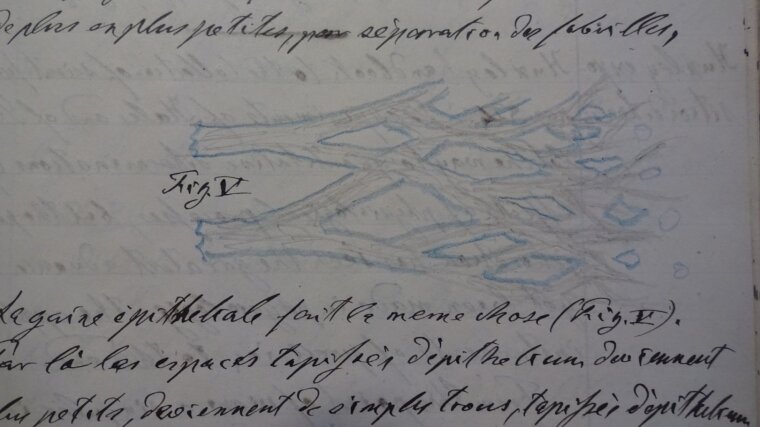 de plus en plus petites, par séparation des fibrilles,
Fig. V
La gaine épithéliale fait la meme chose (Fig. V).
Par là les espaces tapissés d'épithelium deviennent
plus petits, deviennent de simples trous, tapissés d'épithelium